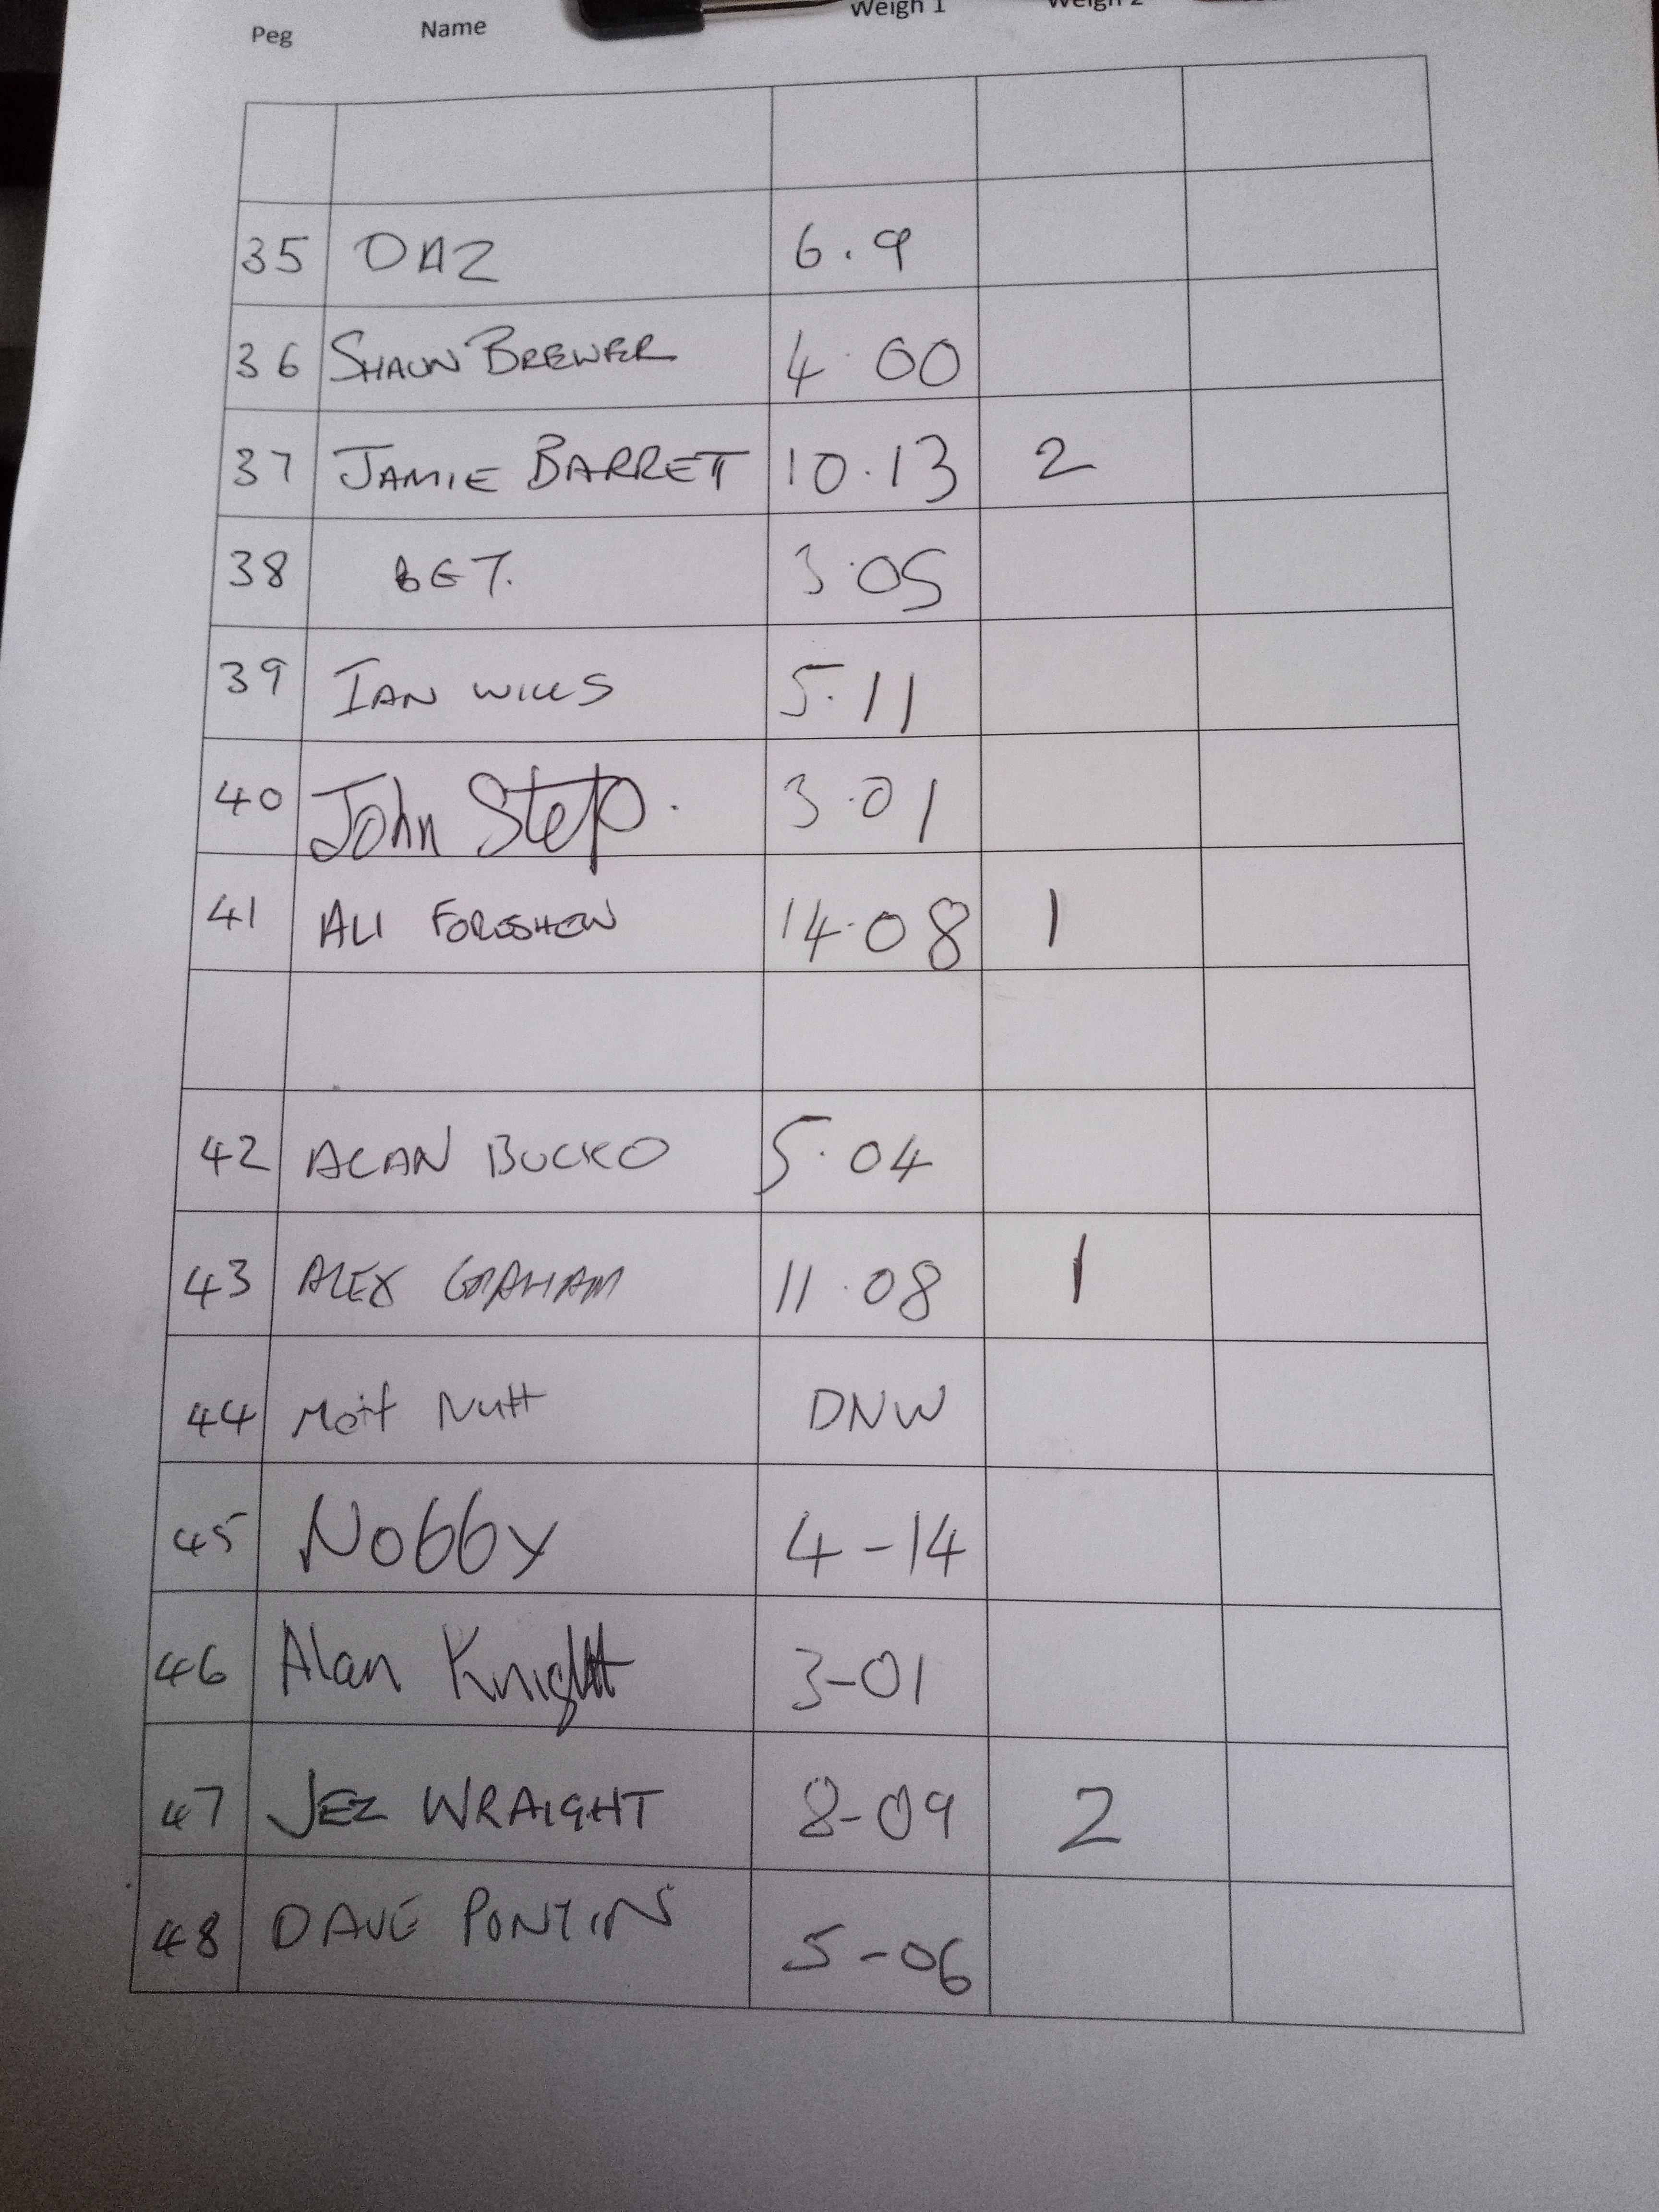 Peg Name Weigh 1 Weigh 2
35 DAZ 6.9
36 SHAUN BREWER 4.00
37 JAMIE BARRET 10.13 2
38 BET. 3.05
39 IAN WILLS 5.11
40 John Step. 3.01
41 ALI 14.08 1
42 ALAN BUCKO 5.04
43 ALEX GRAHAM 11.08 1
44 Matt Nutt DNW
45 Nobby 4-14
46 Alan Knight 3-01
47 JEZ WRAIGHT 8-09 2
48 DAVE PONTIN 5-06